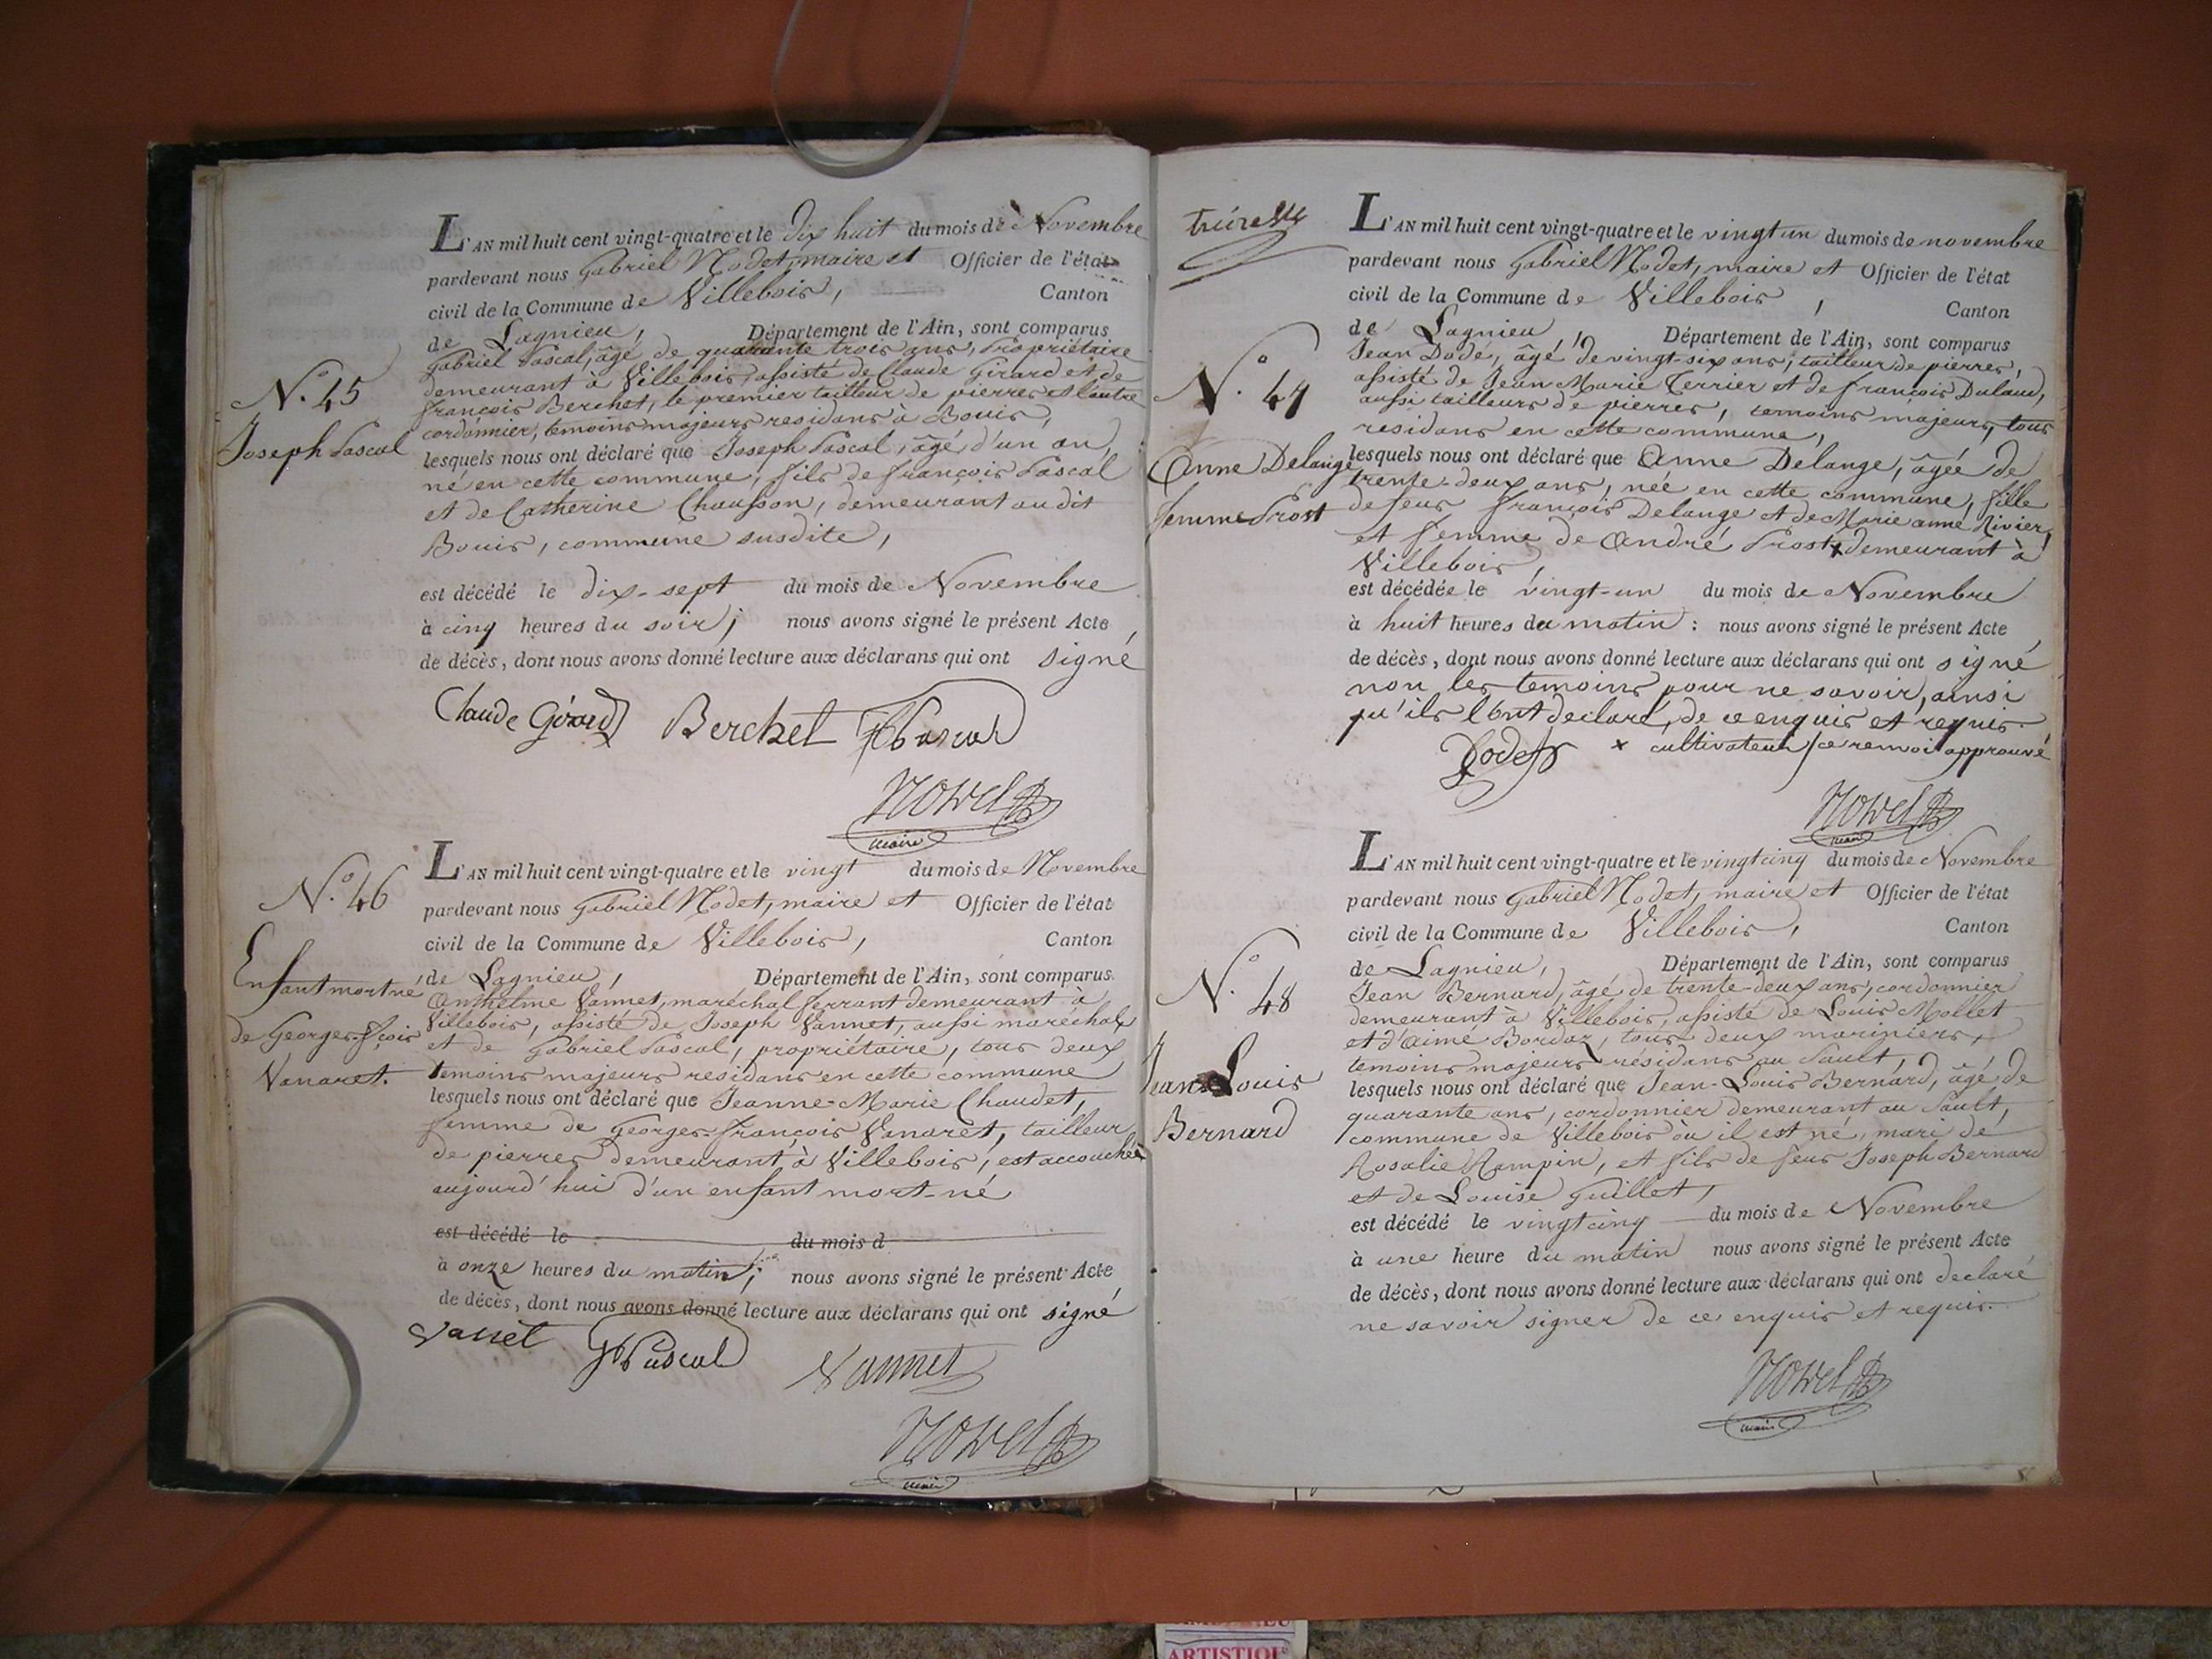 L'AN mil huit cent vingt-quatre et le dix huit du mois de Novembre
pardevant nous Gabriel Nodet, maire et Officier de l'état
civil de la Commune de Villebois, Canton
de Lagnieu, Département de l'Ain, sont comparus
Gabriel Pascal, âgé de quarante trois ans, Propriétaire
demeurant à Villebois, assisté de Claude Girard et de
françois Berchet, le premier tailleur de pierres et l'autre
cordonnier, temoins majeurs residans à Bouis,
N.° 45
Joseph Pascal
lesquels nous ont déclaré que Joseph Pascal, âgé d'un an,
né en cette commune, fils de françois Pascal
et de Catherine Chausson, demeurant au dit
Bouis, commune susdite,
est décédé le dix-sept du mois de Novembre
à cinq heures du soir; nous avons signé le présent Acte
de décès, dont nous avons donné lecture aux déclarans qui ont signé
Claude Girard Berchet Pascal
Nodet
maire
L'AN mil huit cent vingt-quatre et le vingt du mois de Novembre
pardevant nous Gabriel Nodet, maire et Officier de l'état
civil de la Commune de Villebois, Canton
de Lagnieu, Département de l'Ain, sont comparus
N.° 46
Enfant mort né
de Georges fçois
Vanaret.
Anthelme Vannet, maréchal ferrant demeurant à
Villebois, assisté de Joseph Vannet, aussi maréchal
et de Gabriel Pascal, propriétaire, tous deux
temoins majeurs residans en cette commune
lesquels nous ont déclaré que Jeanne-Marie Chaudet,
femme de Georges-françois Vanaret, tailleur
de pierres demeurant à Villebois, est accouchée
aujourd'hui d'un enfant mort-né
est décédé le du mois d
à onze heures du matin; nous avons signé le présent Acte
de décès, dont nous avons donné lecture aux déclarans qui ont signé
Vannet Pascal Vannet
Nodet
maire
L'AN mil huit cent vingt-quatre et le vingt un du mois de novembre
pardevant nous Gabriel Nodet, maire et Officier de l'état
civil de la Commune de Villebois, Canton
de Lagnieu, Département de l'Ain, sont comparus
Jean Dodé, âgé de vingt-six ans, tailleur de pierres,
assisté de Jean-Marie Terrier et de françois Dulaud,
aussi tailleurs de pierres, temoins majeurs, tous
residans en cette commune,
N.° 47
Anne Delange
femme Prost
lesquels nous ont déclaré que Anne Delange, âgée de
trente-deux ans, née en cette commune, fille
de feus françois Delange et de Marie anne Rivier,
et femme de André Prost x demeurant à
Villebois,
est décédée le vingt-un du mois de Novembre
à huit heures du matin: nous avons signé le présent Acte
de décès, dont nous avons donné lecture aux déclarans qui ont signé
non les temoins pour ne savoir, ainsi
qu'ils l'ont declaré, de ce enquis et requis.
Dodet x cultivateur / ce renvoi approuvé
Nodet
maire
L'AN mil huit cent vingt-quatre et le vingt cinq du mois de Novembre
pardevant nous Gabriel Nodet, maire et Officier de l'état
civil de la Commune de Villebois, Canton
de Lagnieu, Département de l'Ain, sont comparus
N.° 48
Jean Louis
Bernard
Jean Bernard, âgé de trente-deux ans, cordonnier
demeurant à Villebois, assisté de Louis Mollet
et d'aimé Bordaz, tous deux mariniers,
temoins majeurs résidans au Sault,
lesquels nous ont déclaré que Jean-Louis Bernard, âgé de
quarante ans, cordonnier demeurant au Sault,
commune de Villebois où il est né, mari de
Rosalie Rampin, et fils de feus Joseph Bernard
et de Louise Guillet,
est décédé le vingt cinq du mois de Novembre
à une heure du matin nous avons signé le présent Acte
de décès, dont nous avons donné lecture aux déclarans qui ont declaré
ne savoir signer de ce enquis et requis.
Nodet
maire
ARTISTIQU